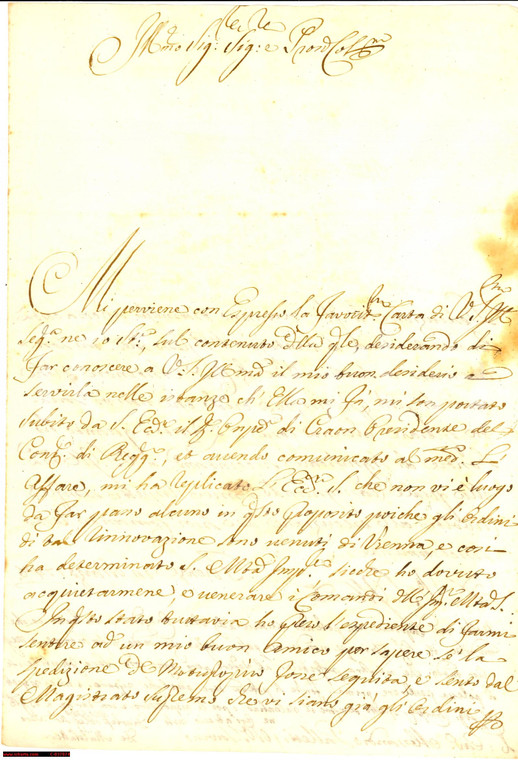 Ill.mo Sig.r Sig.r e Pron Col.mo
Mi perviene con Espresso la favorit.ma Carta di V. S. Ill.ma
seg.ta ne 10 St.e, sul contenuto d.lla q.le, desiderando di
far conoscere a V. S. Ill.ma il mio buon desiderio
servirla nelle istanze ch' Ella mi fà, mi son portato
subito da S. Ecc.a il S.r Pnpe di Craon Presidente del
Cons.o di Regg.a, et avendo comunicato al med.o L'
Affare, mi ha replicato L' Ecc.a S. che non vi è luogo
da far passo alcuno in q.sto proposito poiche gli ordini
di tal innovazione sono venuti di Vienna, e così
ha determinato S. Mtà Imp.le, sicche ho dovuto
acquietarmene, e venerare i Comandi dell' Mtà S.
In q.sto stato tuttavia ho preso l'espediente di farmi
sentire ad un mio buon Amico per sapere se la
spedizione de Motuproprio fosse seguita, e sento dal
Magistrato supremo che vi siano già gli ordini